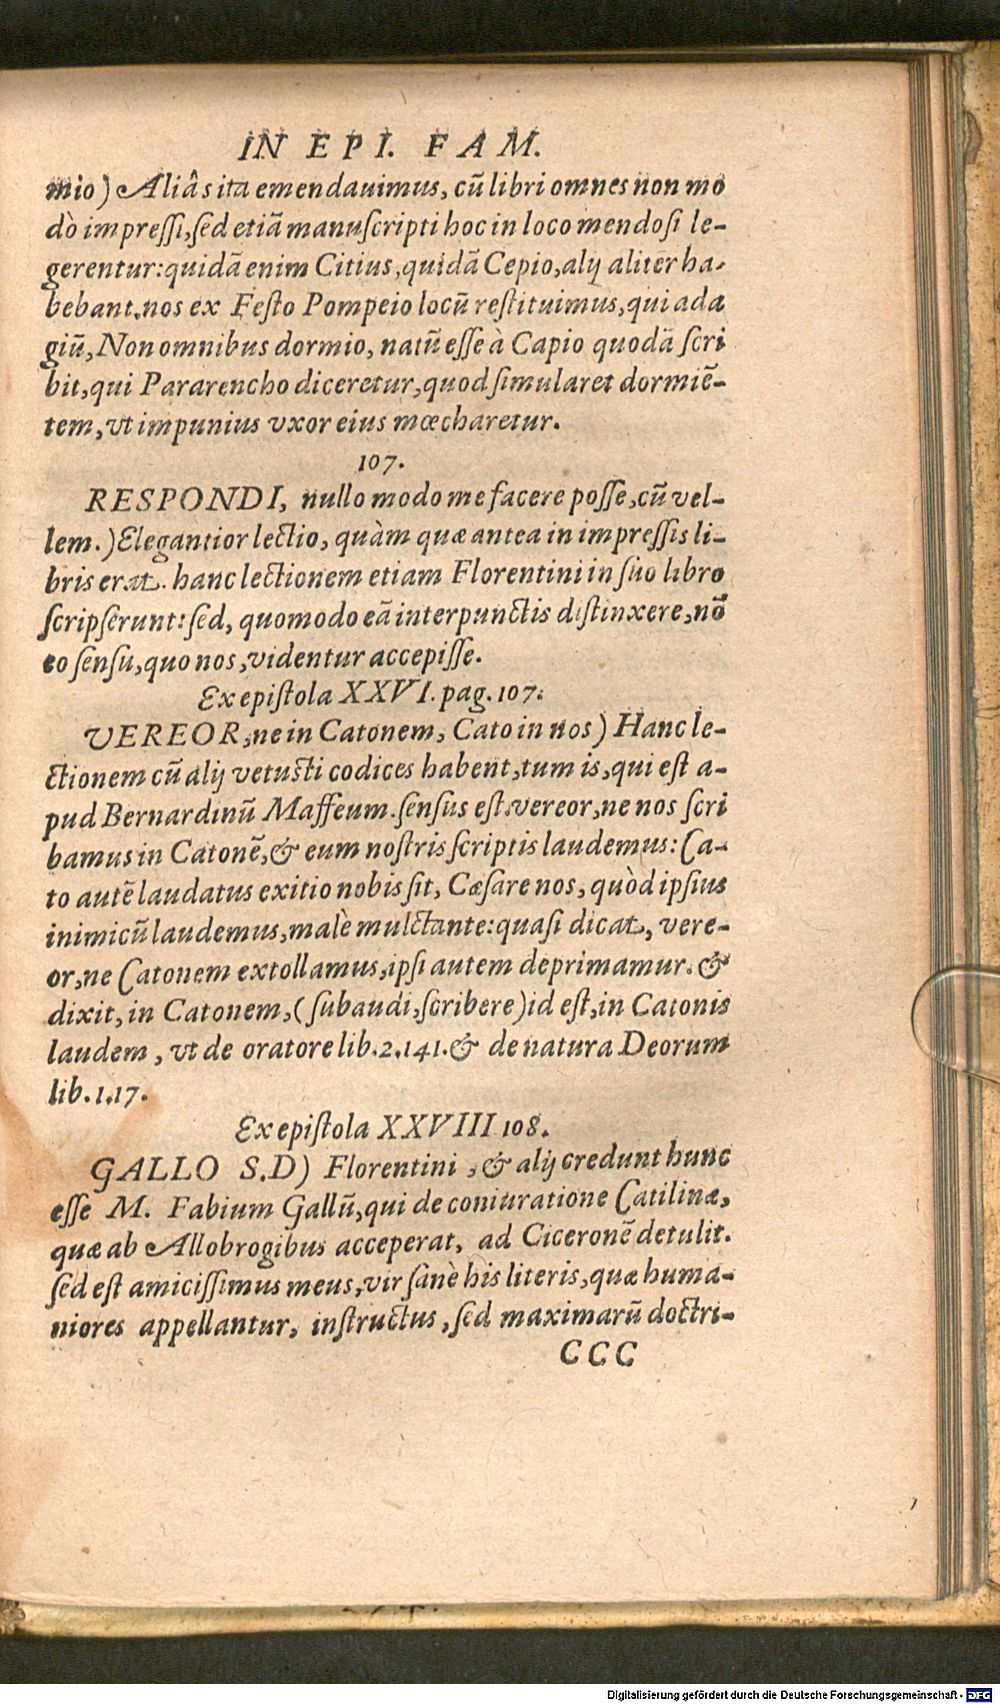 IN EPI. FAM.
mio) Aliâs ita emendauimus, cū libri omnes non mo
dò impreſsi, ſed etiā manuſcripti hoc in loco mendoſi le-
gerentur: quidā enim Citius, quidā Cepio, alij aliter ha-
bebant. nos ex Feſto Pompeio locū reſtituimus, qui ada
giū, Non omnibus dormio, natū eſſe à Capio quodā ſcri
bit, qui Pararencho diceretur, quod ſimularet dormiē-
tem, vt impunius vxor eius mœcharetur.
107.
RESPONDI, nullo modo me facere poſſe, cū vel-
lem.) Elegantior lectio, quàm quæ antea in impreſsis li-
bris erat. hanc lectionem etiam Florentini in ſuo libro
ſcripſerunt: ſed, quomodo eā interpunctis diſtinxere, nō
eo ſenſu, quo nos, videntur accepiſſe.
Ex epiſtola XXVI. pag. 107.
VEREOR, ne in Catonem, Cato in nos) Hanc le-
ctionem cū alij vetuſti codices habent, tum is, qui eſt a-
pud Bernardinū Maffeum. ſenſus eſt. vereor, ne nos ſcri
bamus in Catonē, & eum noſtris ſcriptis laudemus: Ca-
to autē laudatus exitio nobis ſit, Cæſare nos, quòd ipſius
inimicū laudemus, malè mulctante: quaſi dicat, vere-
or, ne Catonem extollamus, ipſi autem deprimamur. &
dixit, in Catonem, (ſubaudi, ſcribere) id eſt, in Catonis
laudem, vt de oratore lib. 2. 141. & de natura Deorum
lib. 1. 17.
Ex epiſtola XXVIII 108.
GALLO S.D) Florentini, & alij credunt hunc
eſſe M. Fabium Gallū, qui de coniuratione Catilinæ,
quæ ab Allobrogibus acceperat, ad Ciceronē detulit.
ſed eſt amiciſsimus meus, vir ſanè his literis, quæ huma-
niores appellantur, inſtructus, ſed maximarū doctri-
CCC
Digitalisierung gefördert durch die Deutsche Forschungsgemeinschaft - DFG